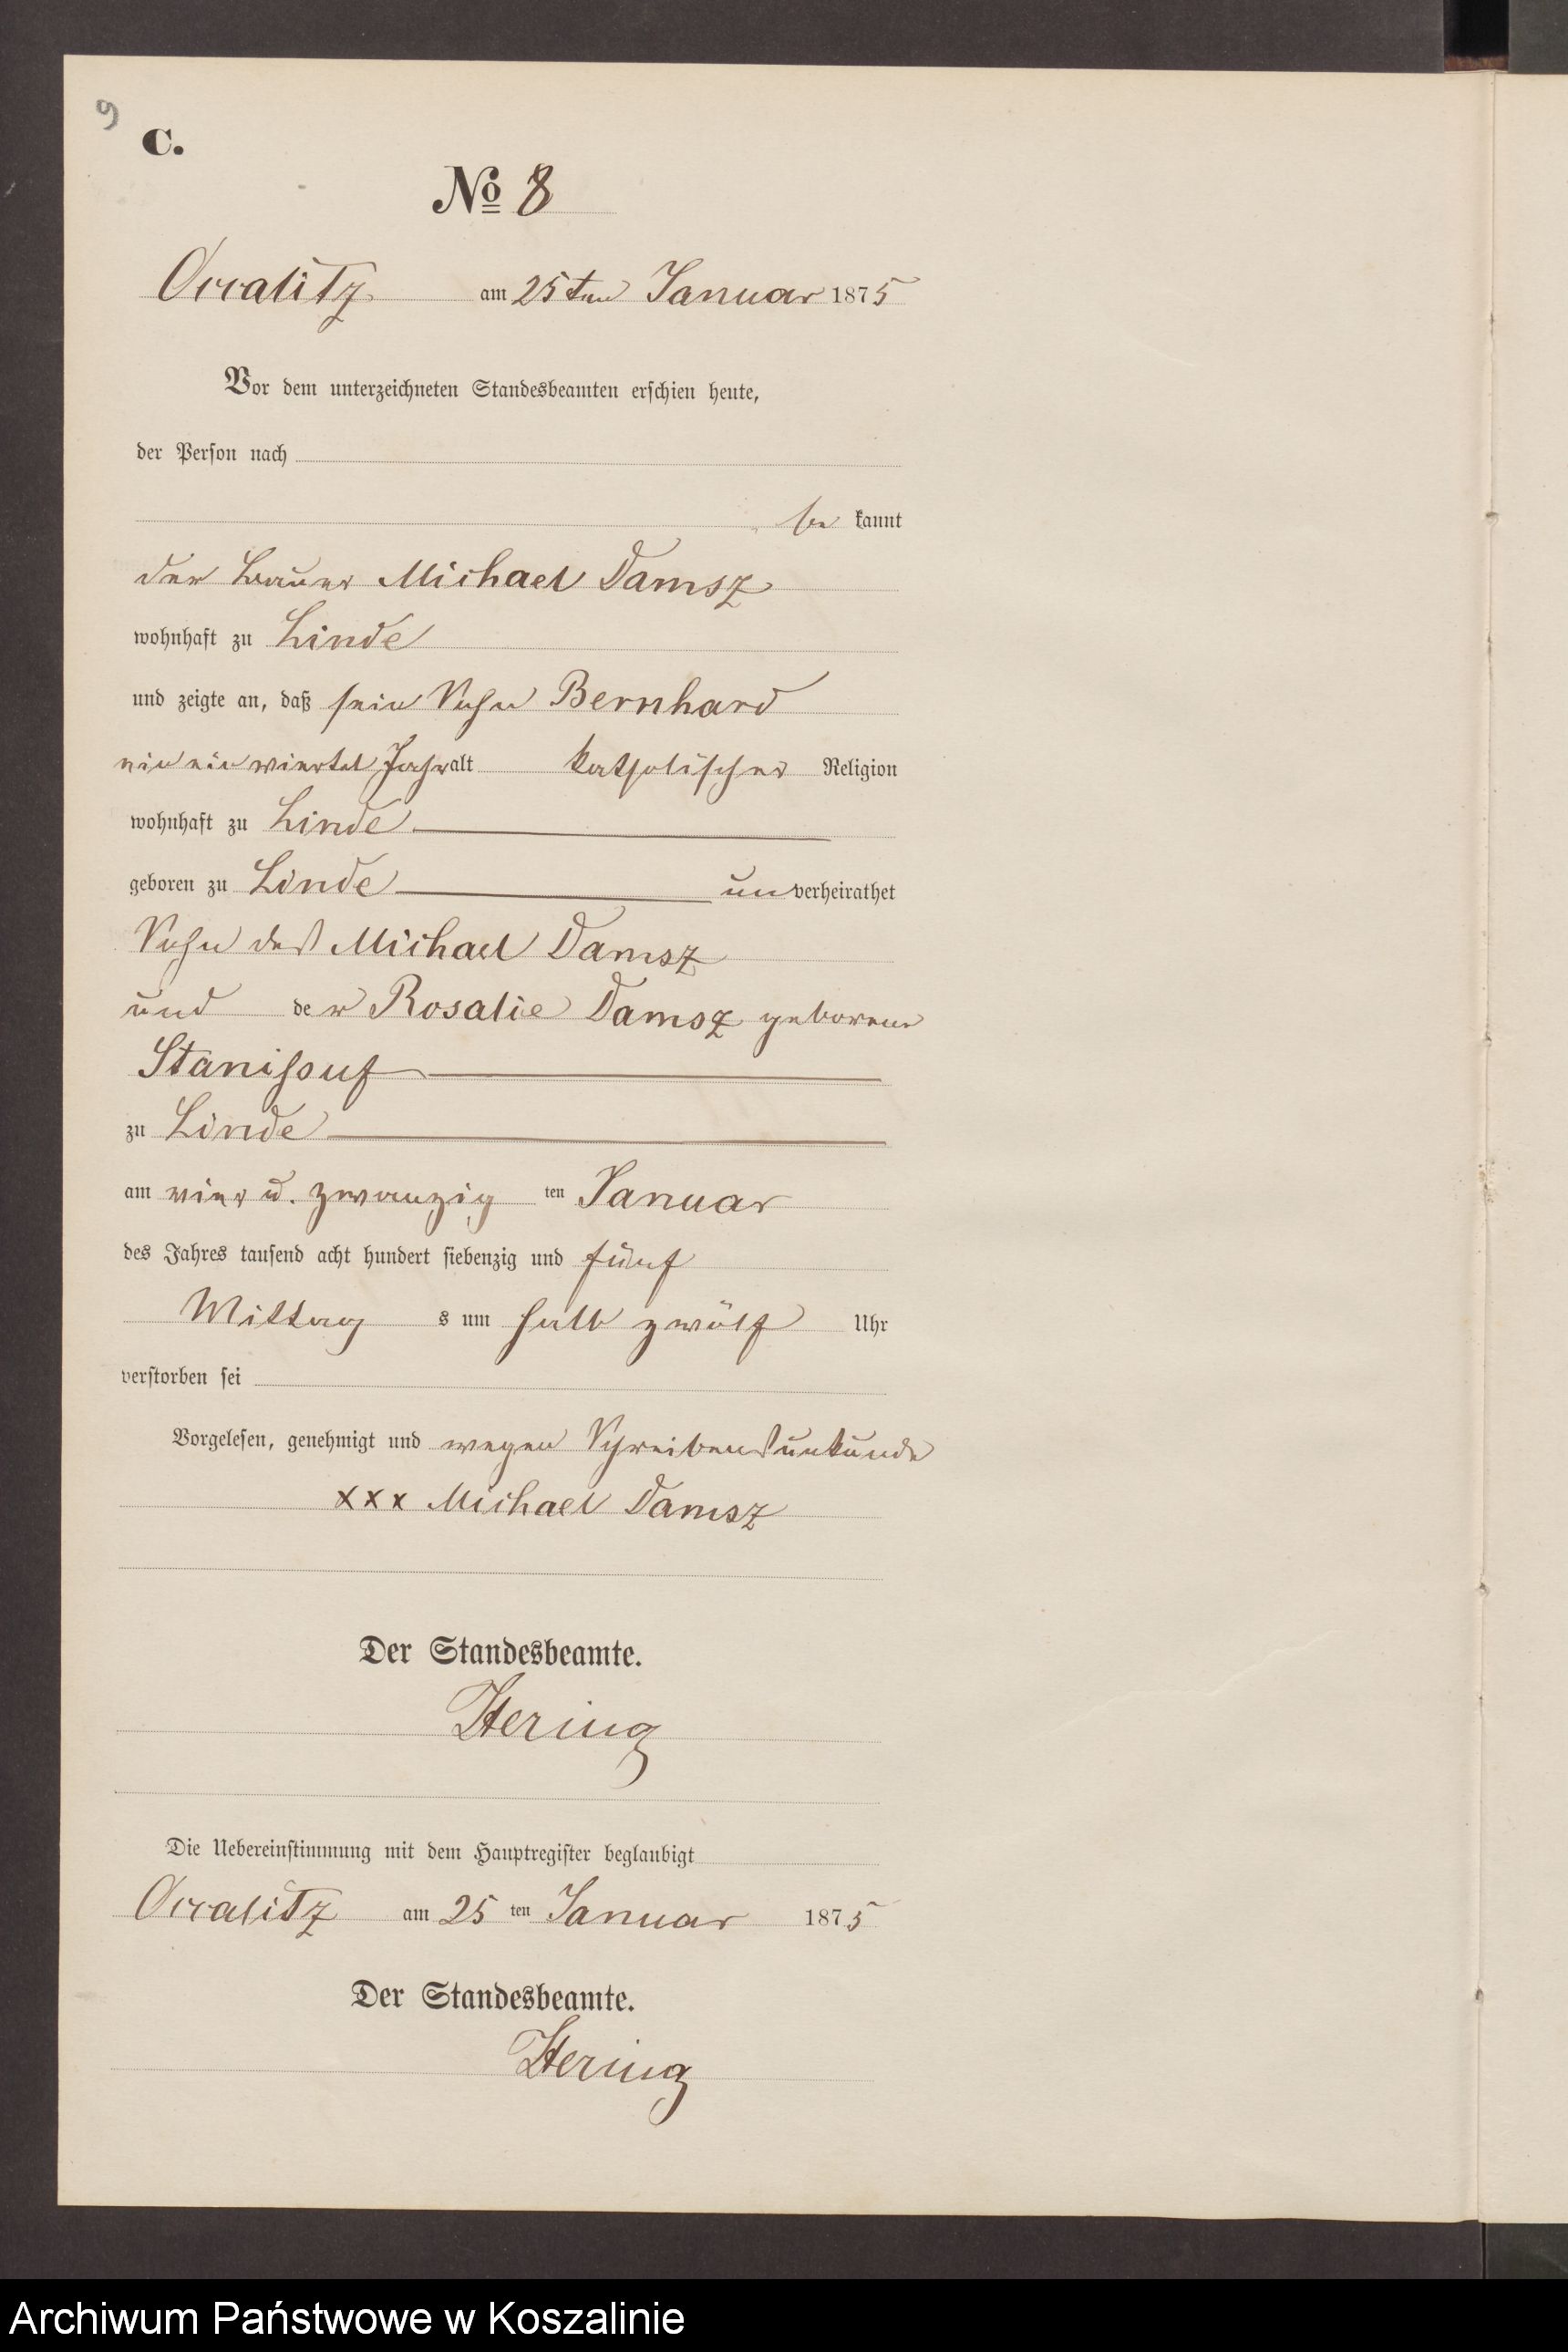 9
C.
No 8
Occalitz am 25ten Januar 1875
Vor dem unterzeichneten Standesbeamten erschien heute,
der Person nach
be kannt
der Bauer Michael Damsz
wohnhaft zu Linde
und zeigte an, daß sein Sohn Bernhard
ein ein viertel Jahr alt katholischer Religion
wohnhaft zu Linde
geboren zu Linde un verheirathet
Sohn des Michael Damsz
und der Rosalie Damsz geborene
zu Linde
am vier u. zwanzig ten Januar
des Jahres tausend acht hundert siebenzig und fünf
Mittag s um halb zwölf Uhr
verstorben sei
Vorgelesen, genehmigt und wegen Schreibensunkunde
xxx Michael Damsz
Der Standesbeamte.
Hering
Die Uebereinstimmung mit dem Hauptregister beglaubigt
Occalitz am 25 ten Januar 1875
Der Standesbeamte.
Hering
Archiwum Państwowe w Koszalinie